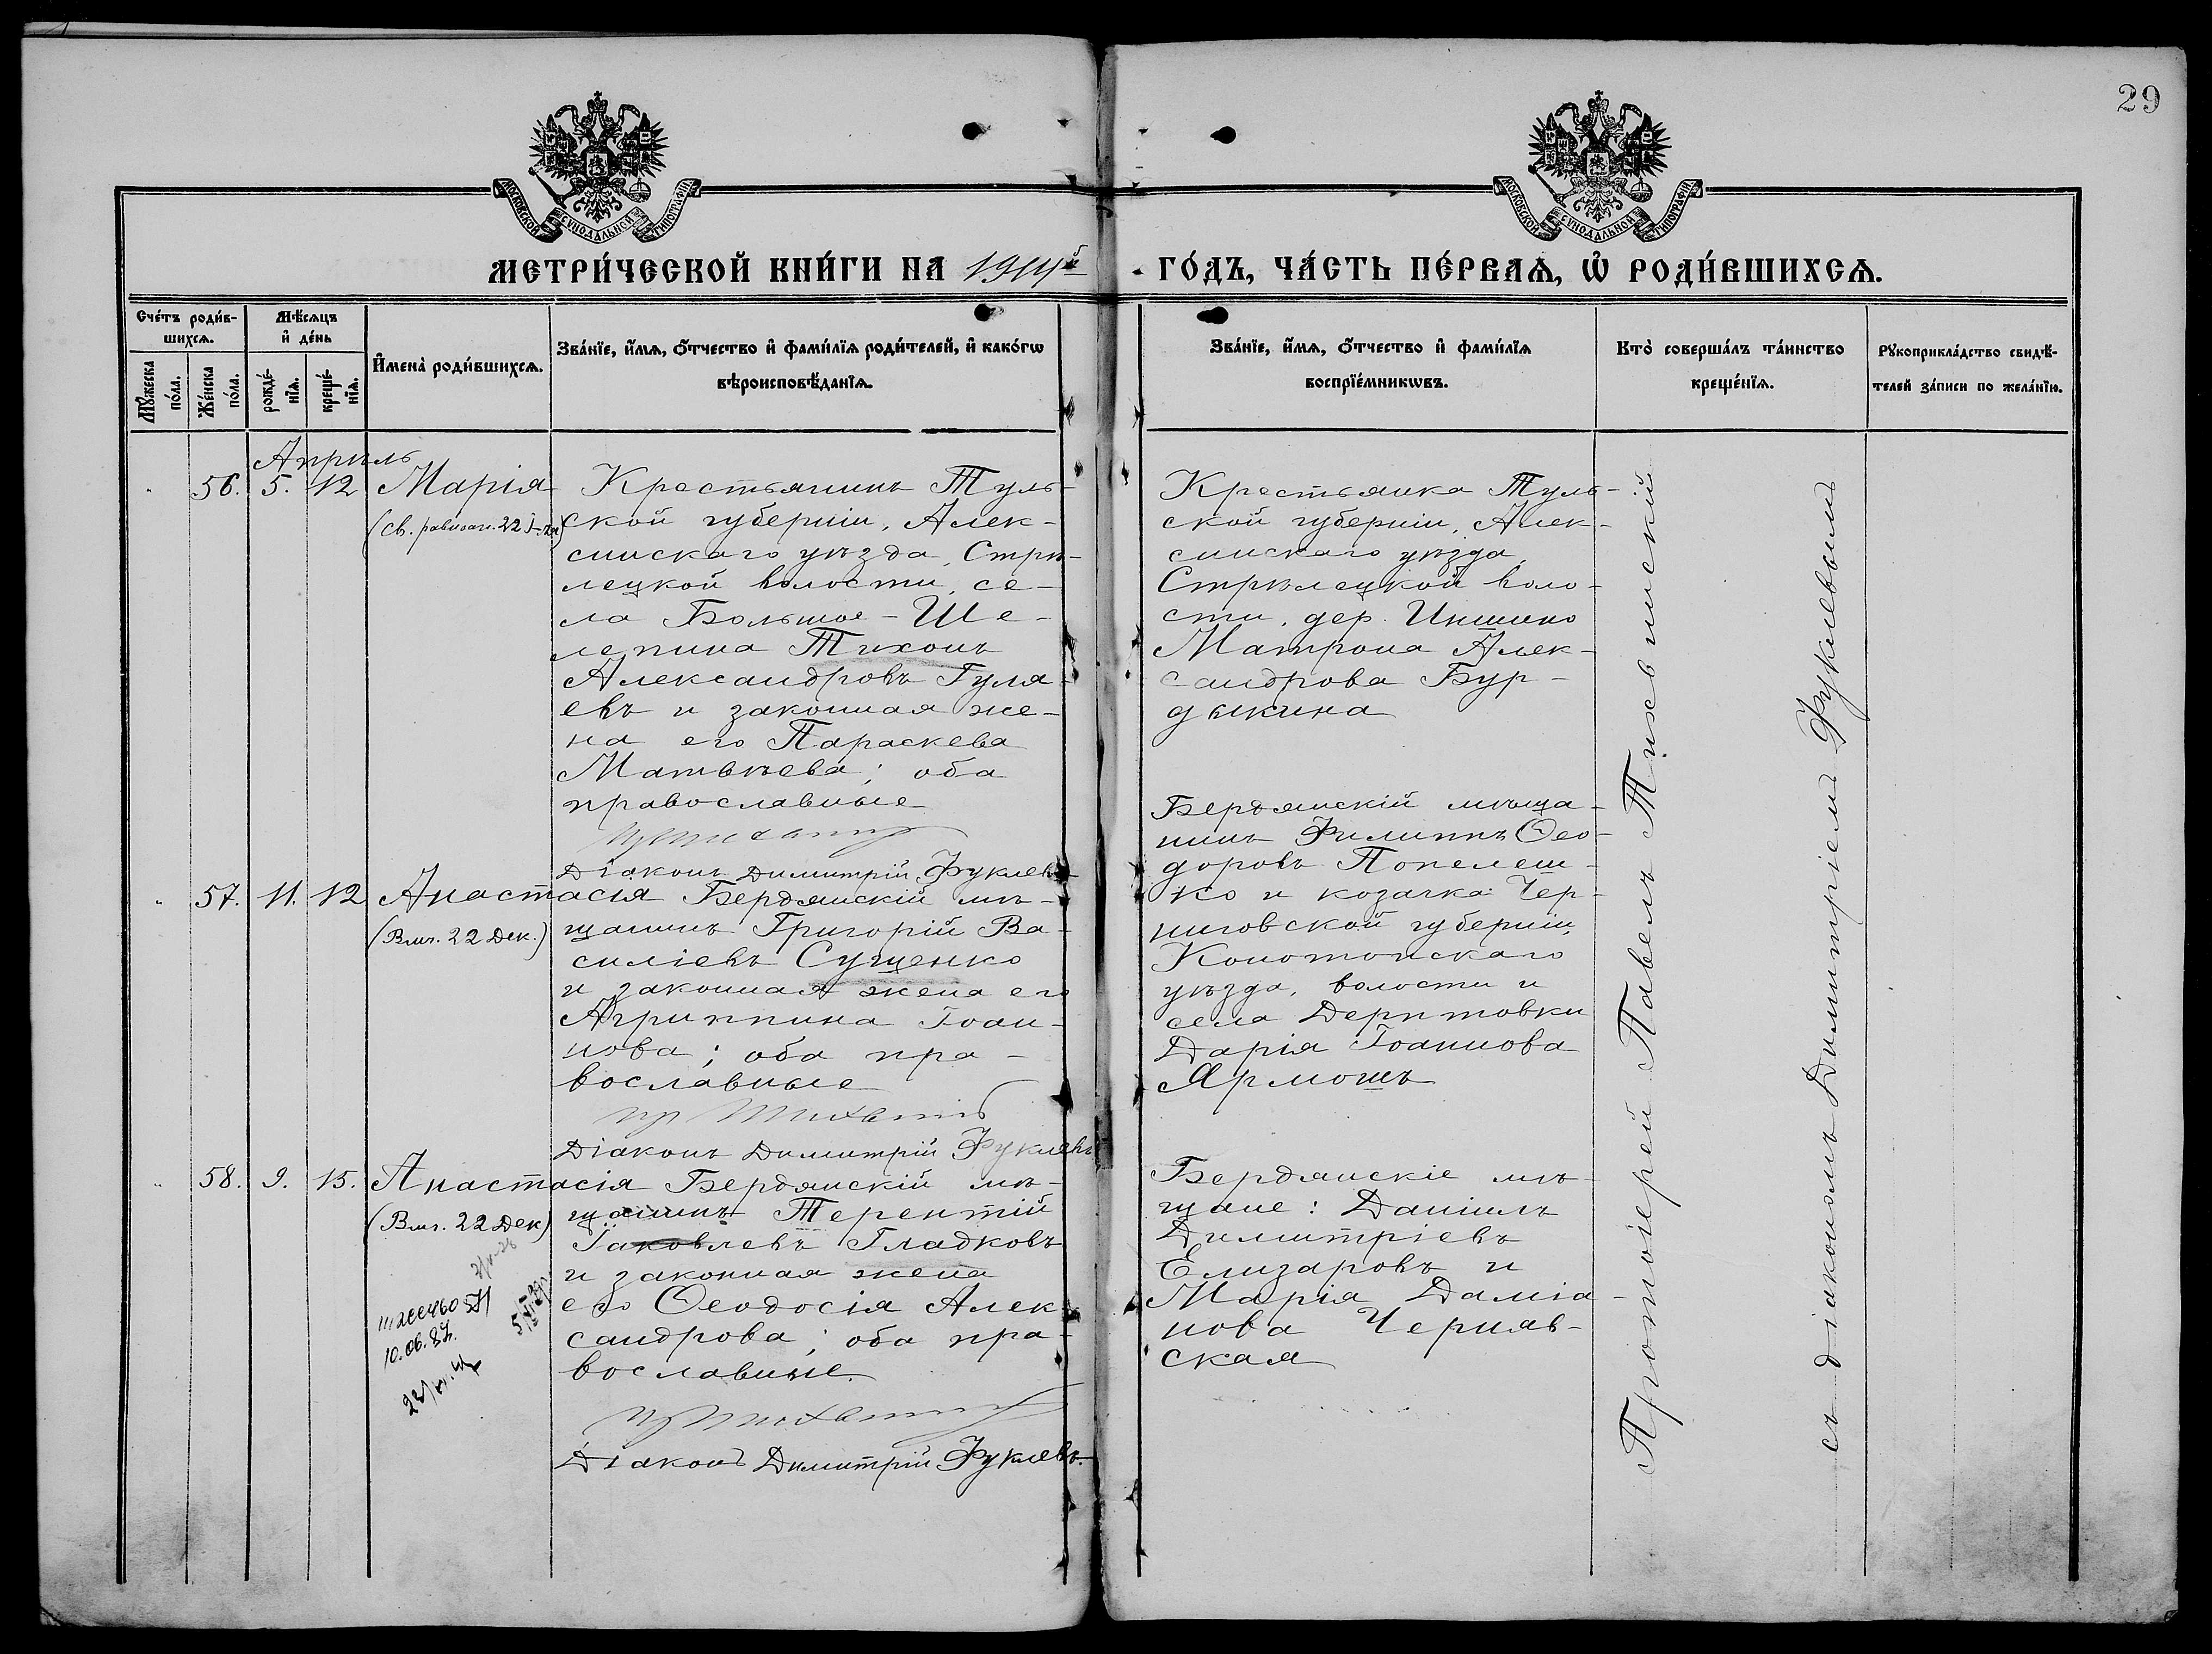 29
МОСКОВСКОЙ СУНОДАЛЬНОЙ ТИПОГРАФІИ
МОСКОВСКОЙ СУНОДАЛЬНОЙ ТИПОГРАФІИ
МЕТРИ́ЧЕСКОЙ КНИ́ГИ НА 1914й
ГО́ДЪ, ЧА́СТЬ ПЕ́РВАѦ, Ѡ҆ РОДИ́ВШИХСѦ.
Сче́тъ роди́в-
шихсѧ.
Мꙋ́жеска по́ла.
Же́нска по́ла.
Мѣ́сѧцъ
и҆ де́нь
рожде́-
нїѧ.
креще́-
нїѧ.
И҆мена̀ роди́вшихсѧ.
Зва́нїе, и҆́мѧ, ѻ҆́тчество и҆ фами́лїѧ роди́телей, и҆ како́гѡ
вѣроисповѣ́данїѧ.
Зва́нїе, и҆́мѧ, ѻ҆́тчество и҆ фами́лїѧ
воспрїе́мникѡвъ.
Кто̀ соверша́лъ та́инство
креще́нїѧ.
Рꙋкоприкла́дство свидѣ́-
телей за́писи по жела́нїю.
Апрѣль
56. 5. 12 Марія
Крестьянинъ Туль-
ской губерніи, Алек-
синскаго уѣзда, Стрѣ-
лецкой волости, се-
ла Большое-Ше-
лепина Тихонъ
Александровъ Гуля-
евъ и законная же-
на его Параскева
Матвѣева; оба
православные
Діаконъ Димитрій Фуклевъ
Крестьянка Туль-
ской губерніи, Алек-
синскаго уѣзда,
Стрѣлецкой воло-
сти, дер. Иншино
Матрона Алек-
сандрова Бур-
дыкина
57. 11. 12 Анастасія
(Вмч. 22 Дек.)
Бердянскій мѣ-
щанинъ Григорій Ва-
силіевъ Сущенко
и законная жена его
Агриппина Іоан-
нова; оба пра-
вославные
пр Тихвинс
Діаконъ Димитрій Фуклевъ
Бердянскій мѣща-
нинъ Филиппъ Ѳео-
доровъ Попелеш-
ко и козачка Чер-
ниговской губерніи,
Конотопскаго
уѣзда, волости и
села Дептовки
Дарія Іоаннова
Ярмошъ
58. 9. 15. Анастасія
(Вмч. 22 Дек)
Бердянскій мѣ-
щанинъ Терентій
Іаковлевъ Гладковъ
и законная жена
его Ѳеодосія Алек-
сандрова; оба пра-
вославные.
Діаконъ Димитрій Фуклевъ.
10.06.87.
Бердянскіе мѣ-
щане: Даніилъ
Димитріевъ
Елизаровъ и
Марія Даміа-
нова Черняв-
ская
Протоіерей Павелъ Тихвинскій
съ діакономъ Димитріемъ Фуклевымъ